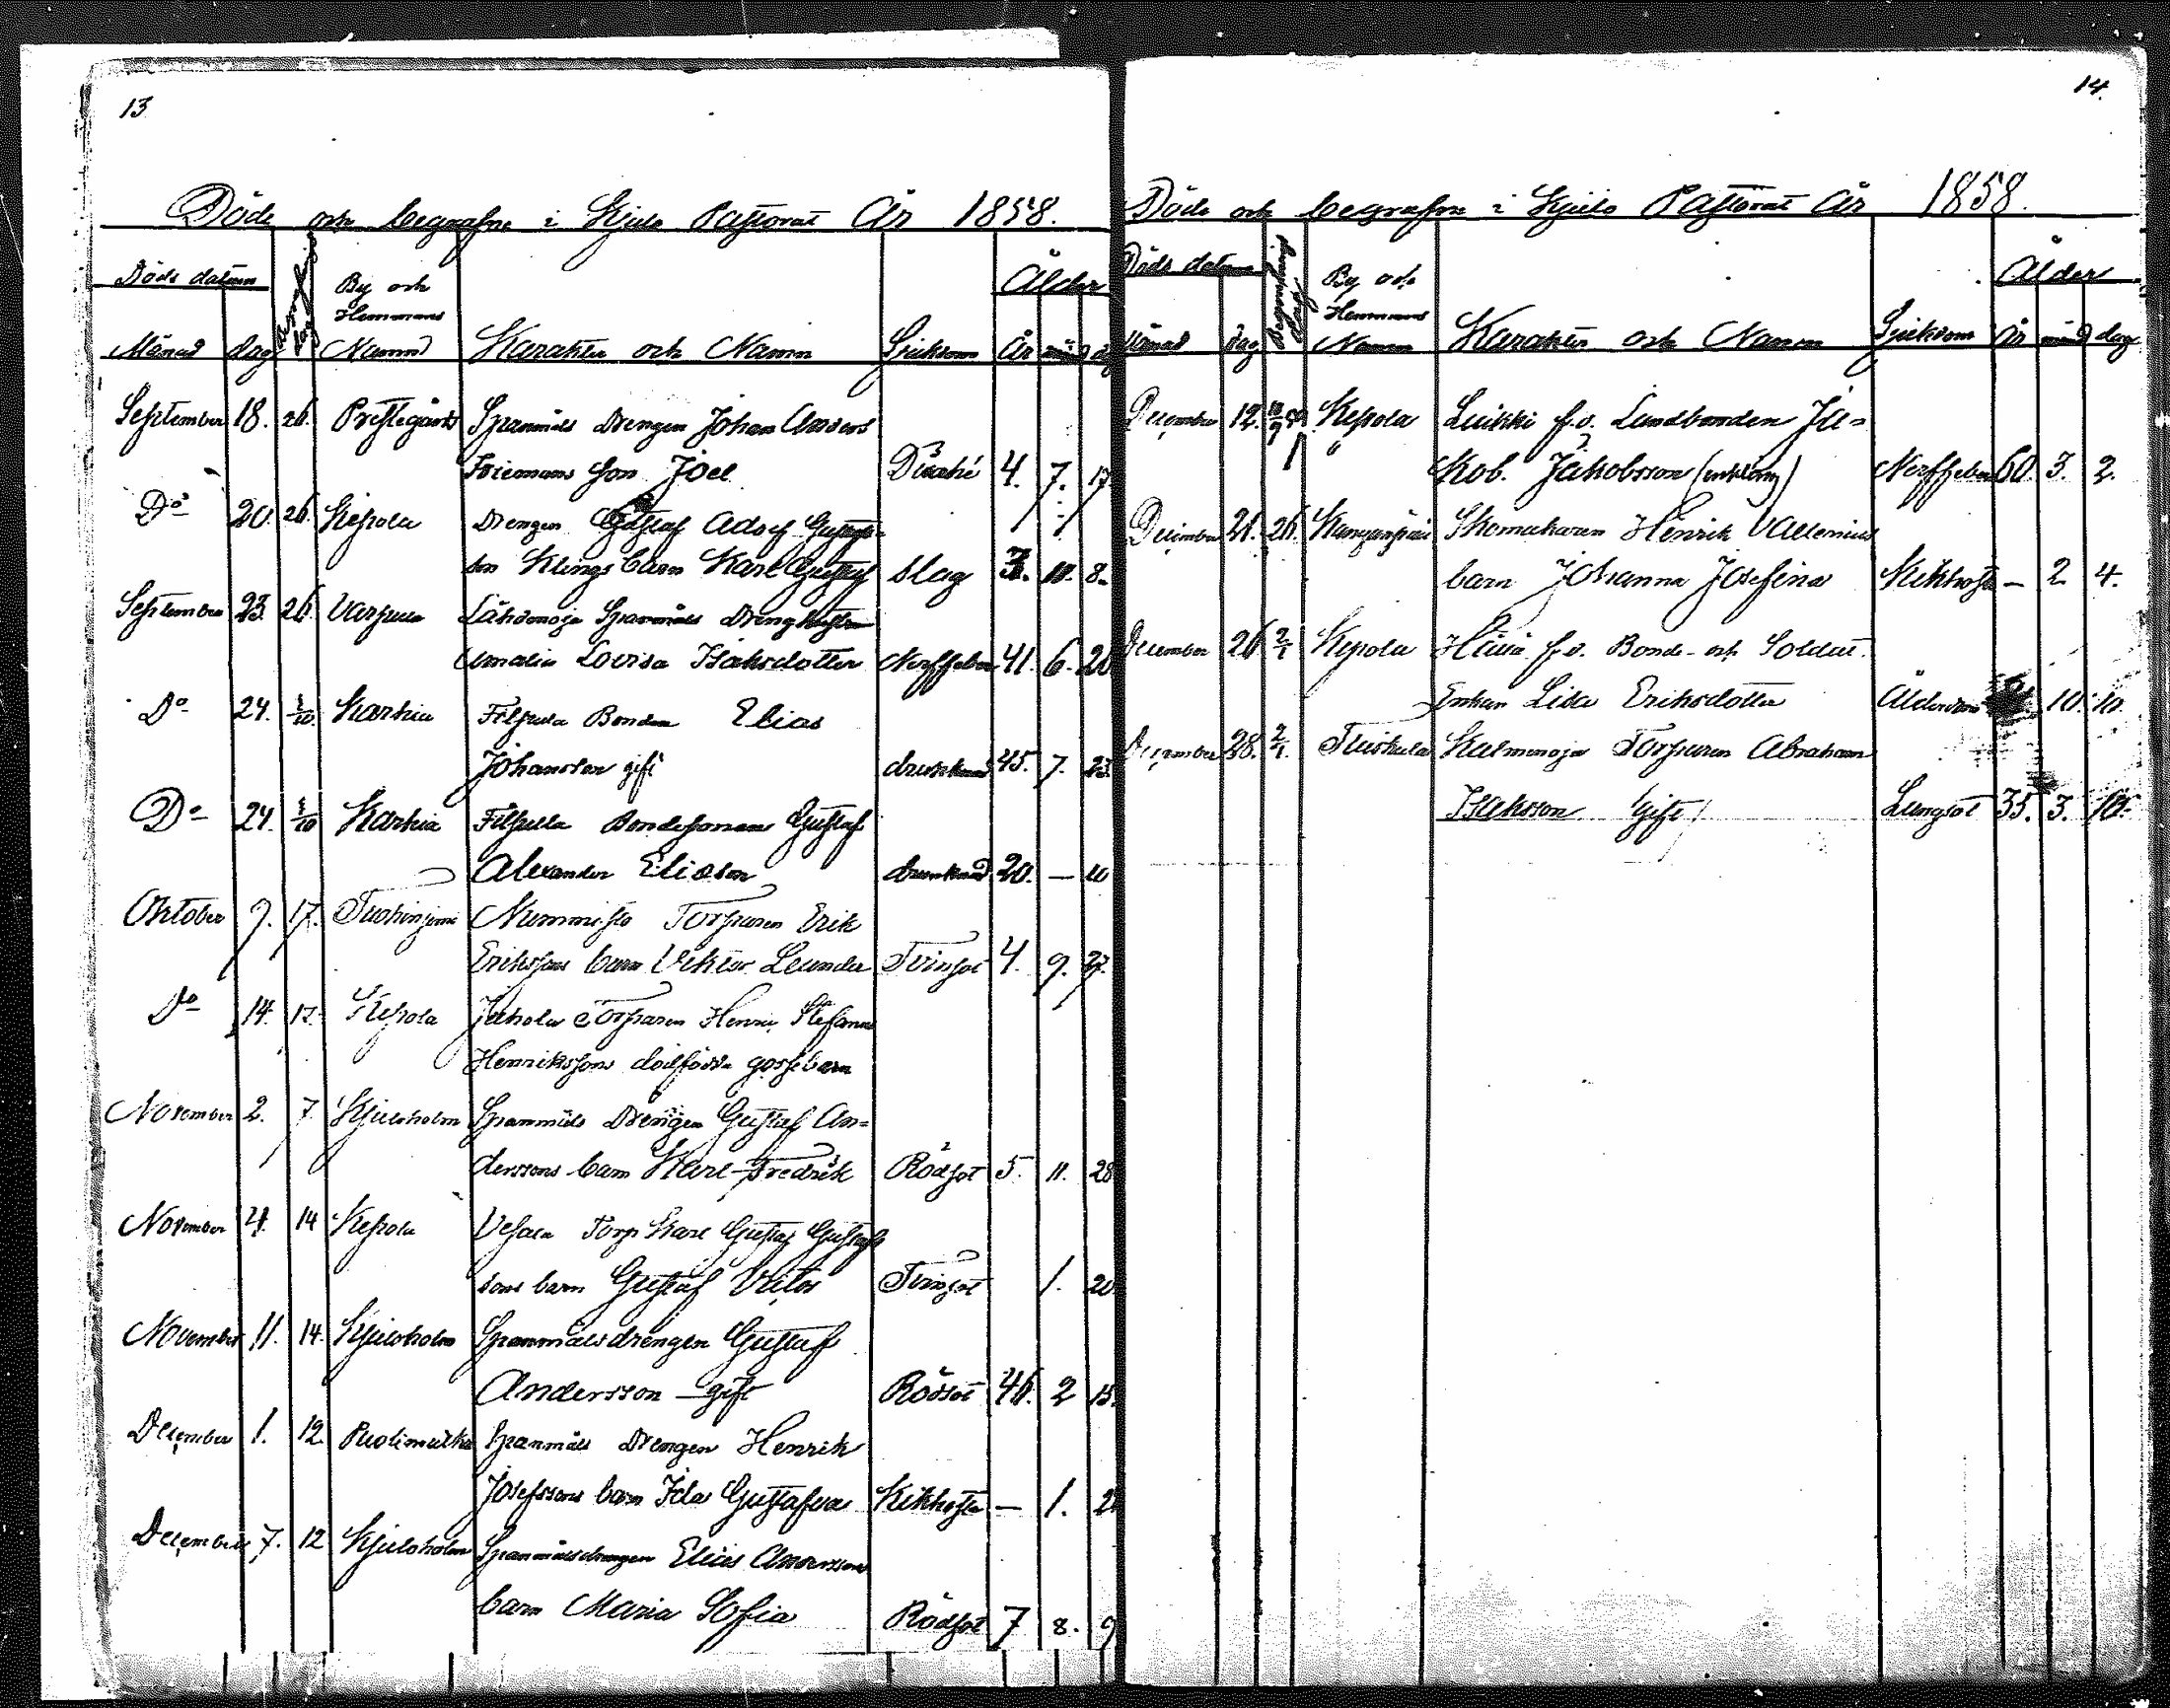 13
Döde och begrafne i Kjulo Pastorat År 1858.
Döds datum
By och Hemmans
Ålder
Månad dag Namn Karakter och Namn Sjukdom År mån
September 18. 26. Prestegård Spanmåls Drengen Johan Anders
Friemans son Joel 4. 7. 17
Do 20. 26. Kepola Drengen Gustaf Adolf Gustafs-
son Klings barn Karl Gustaf slag 8.
September 23. 26. Spanmåls
Amalia Lovisa Isaksdotter Nerffeber 41. 6. 20
Do 24. 1/10 Karhia Filpula Bonden Elias
Johansson gift drunknad 45. 7. 23
Do 24. 1/10 Karhia Filpula Bondesonen Gustaf
Alexander Eliason drunknad 20. — 10
Oktober 9. 17. Nummisto Torparen Erik
Erikssons barn Viktor Leander Tvinsot 4. 9. 27.
Do 14. 17. Kepola Jakola Torparen Henric Stefanus
Henrikssons dödfödda gossebarn
November 2. 7 Kjuloholm Spanmåls Drengen Gustaf An-
derssons barn Karl Fredrik Rödsot 5. 11. 28
November 4. 14 Kepola Torp Karl Gustaf Gustafs
sons barn Gustaf Tvinsot 1. 20
November 11. 14. Kjuloholm Spanmålsdrengen Gustaf
Andersson — gift Rödsot 46. 2 15.
December 1. 12 Spanmåls Drengen Henrik
Josefssons barn Ida Gustafva Kikhosta — 1. 2
December 7. 12 Kjuloholm Spanmålsdrengen Elias Anderssons
barn Maria Sofia Rödsot 7 8. 9
14.
Döde och begrafne i Kjulo Pastorat År 1858.
Döds datum
Begrafnings dag
By och Hemmans
Ålder
Månad dag Namn Karakter och Namn Sjukdom År månad dag
December 12. Kepola Luikki f.d. Landbonden Ja-
kob Jakobsson (enkling) Nerffeber 60. 3. 2.
December 21. 26. Skomakaren Henrik Vallenius
barn Johanna Josefina Kikhosta — 2 4.
December 26 2/1 Kepola f.d. Bonde- och Soldat
Enkan Lisa Eriksdotter 10. 10.
December 28. 2/1. Tuiskula Torparen Abraham
Isaksson (gift) Lungsot 35. 3. 10.